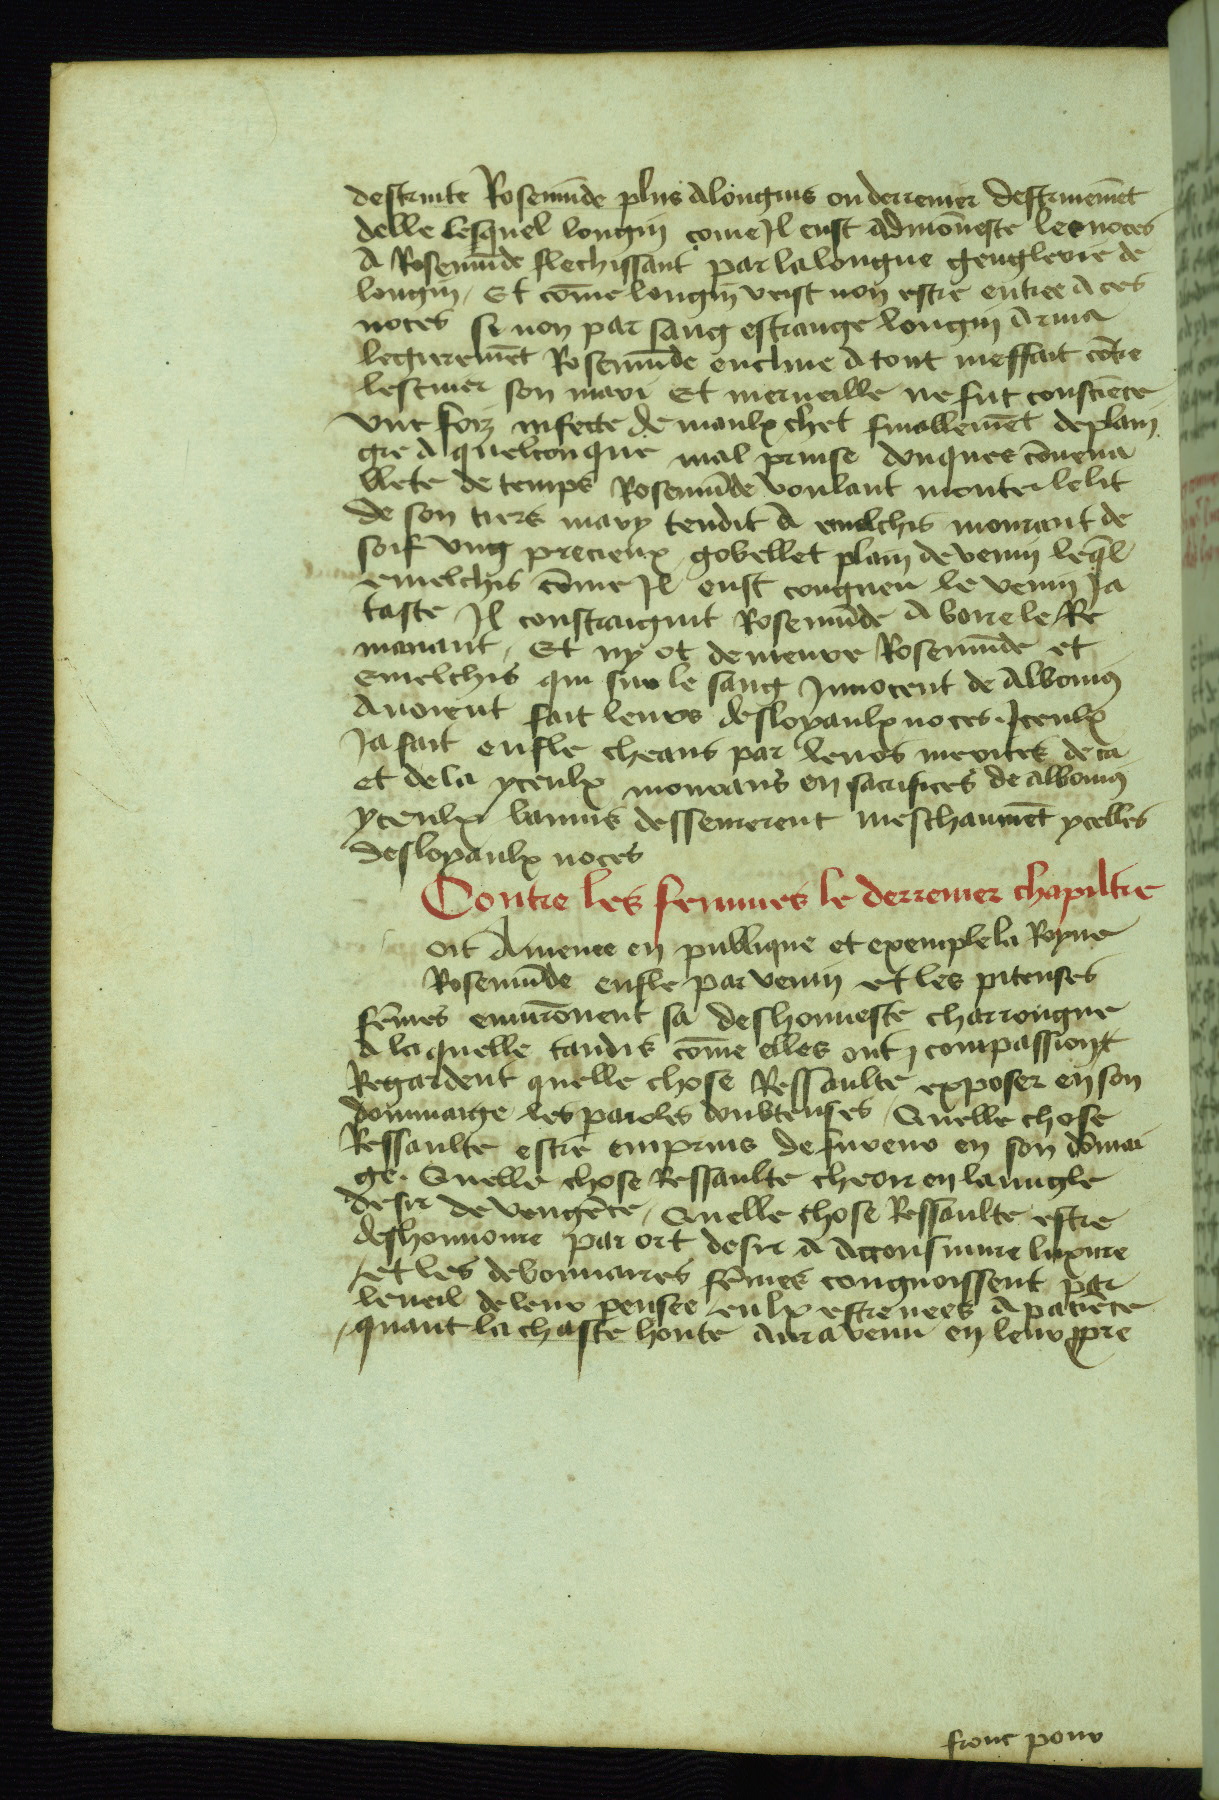 destruite Rosemūde plus A longins ou derrenier destruiemēt
delle Lesquel longin come Il eust Admōneste les noces
A Rosemūde flechissant par la longue genglerie de
longin / Et cōme longin veist non estre entree A ces
noces si non par sang estrange longin Arma
legieremēt Rosemūde encline A tout meffait cōtre
lescuier son mari Et merueille ne fut consciēce
vne foiz infecte de maulx chet finablemēt de plain
gre A quelconque mal prinse donques cōuena
blete de temps Rosemūde voulant monter le lit
de son tiers mary tendit A emelchis mourant de
soif vng precieux gobellet plain de venin leq̄l
emelchis cōme Il eust congneu le venin Ja
taste Il constraignit Rosemūde A boire le Re
manant / Et ny ot demeure Rosemūde et
emelchis qui sur le sang Innocent de Albonius
Auoient fait leurs desloyaulx noces . Iceulx
Ja fait enfle cheans par leurs merites de ca
et de la yceulx mourans en sacrifices de albonius
yceulx bannis dessemerent meschanmēt ycelles
desloyaulx noces
Contre les femmes le derrenier chapiltre
oit Amenee en publique et exemple la Royne
Rosemūde enfle par venin et les piteuses
fēmes enuirōnent sa deshonneste charrongne
A laquelle tandis cōme elles ont compassion
Regardent quelle chose Ressaulte exposer en son
dommaige les paroles doubteuses / Quelle chose
Ressaulte estre emprins de fureur en son dōmai
ge . Quelle chose Ressaulte cheoir en lauugle
desir de vengēce / Quelle chose Ressaulte estre
deshonnore par ort desir A Acconsuiure luxure
et les debonnaires fēmes congnoissent par
leueil de leur pensee eulx estre nees A paciēce
quant la chaste honte aura venu en leur ppre
fronc pour